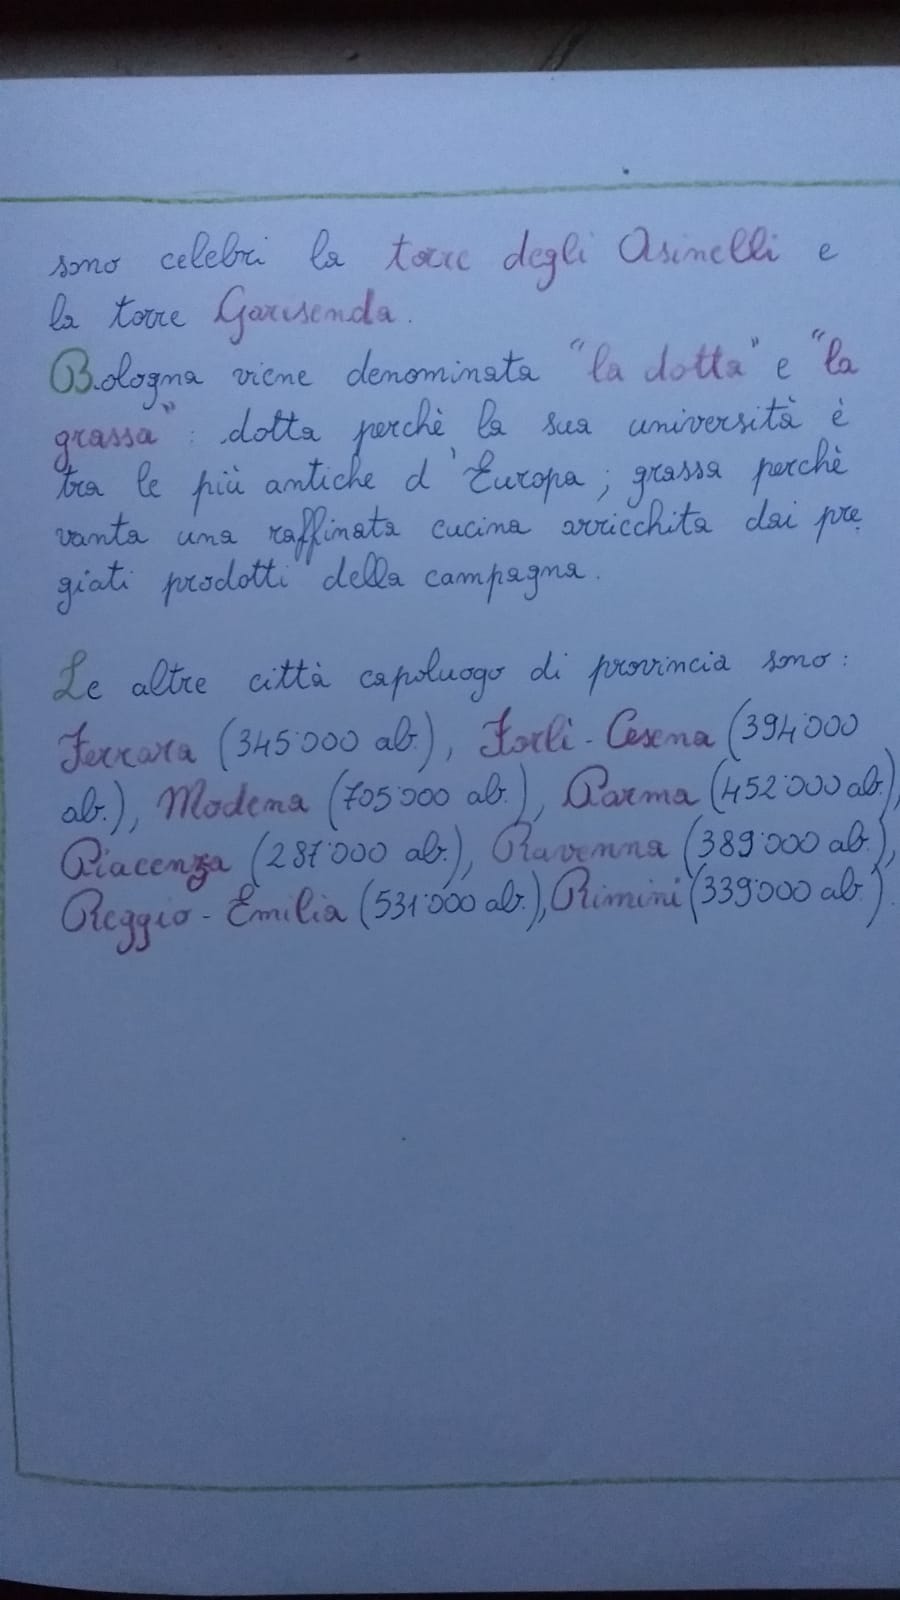 sono celebri la torre degli Asinelli e
la torre Garisenda.
Bologna viene denominata "la dotta" e "la
grassa": dotta perchè la sua università è
tra le più antiche d'Europa; grassa perchè
vanta una raffinata cucina arricchita dai pre
giati prodotti della campagna.
Le altre città capoluogo di provincia sono:
Ferrara (345'000 ab.), Forlì-Cesena (394'000
ab.), Modena (705'000 ab.), Parma (452'000 ab.),
Piacenza (287'000 ab.), Ravenna (389'000 ab.),
Reggio-Emilia (531'000 ab.), Rimini (339'000 ab.).